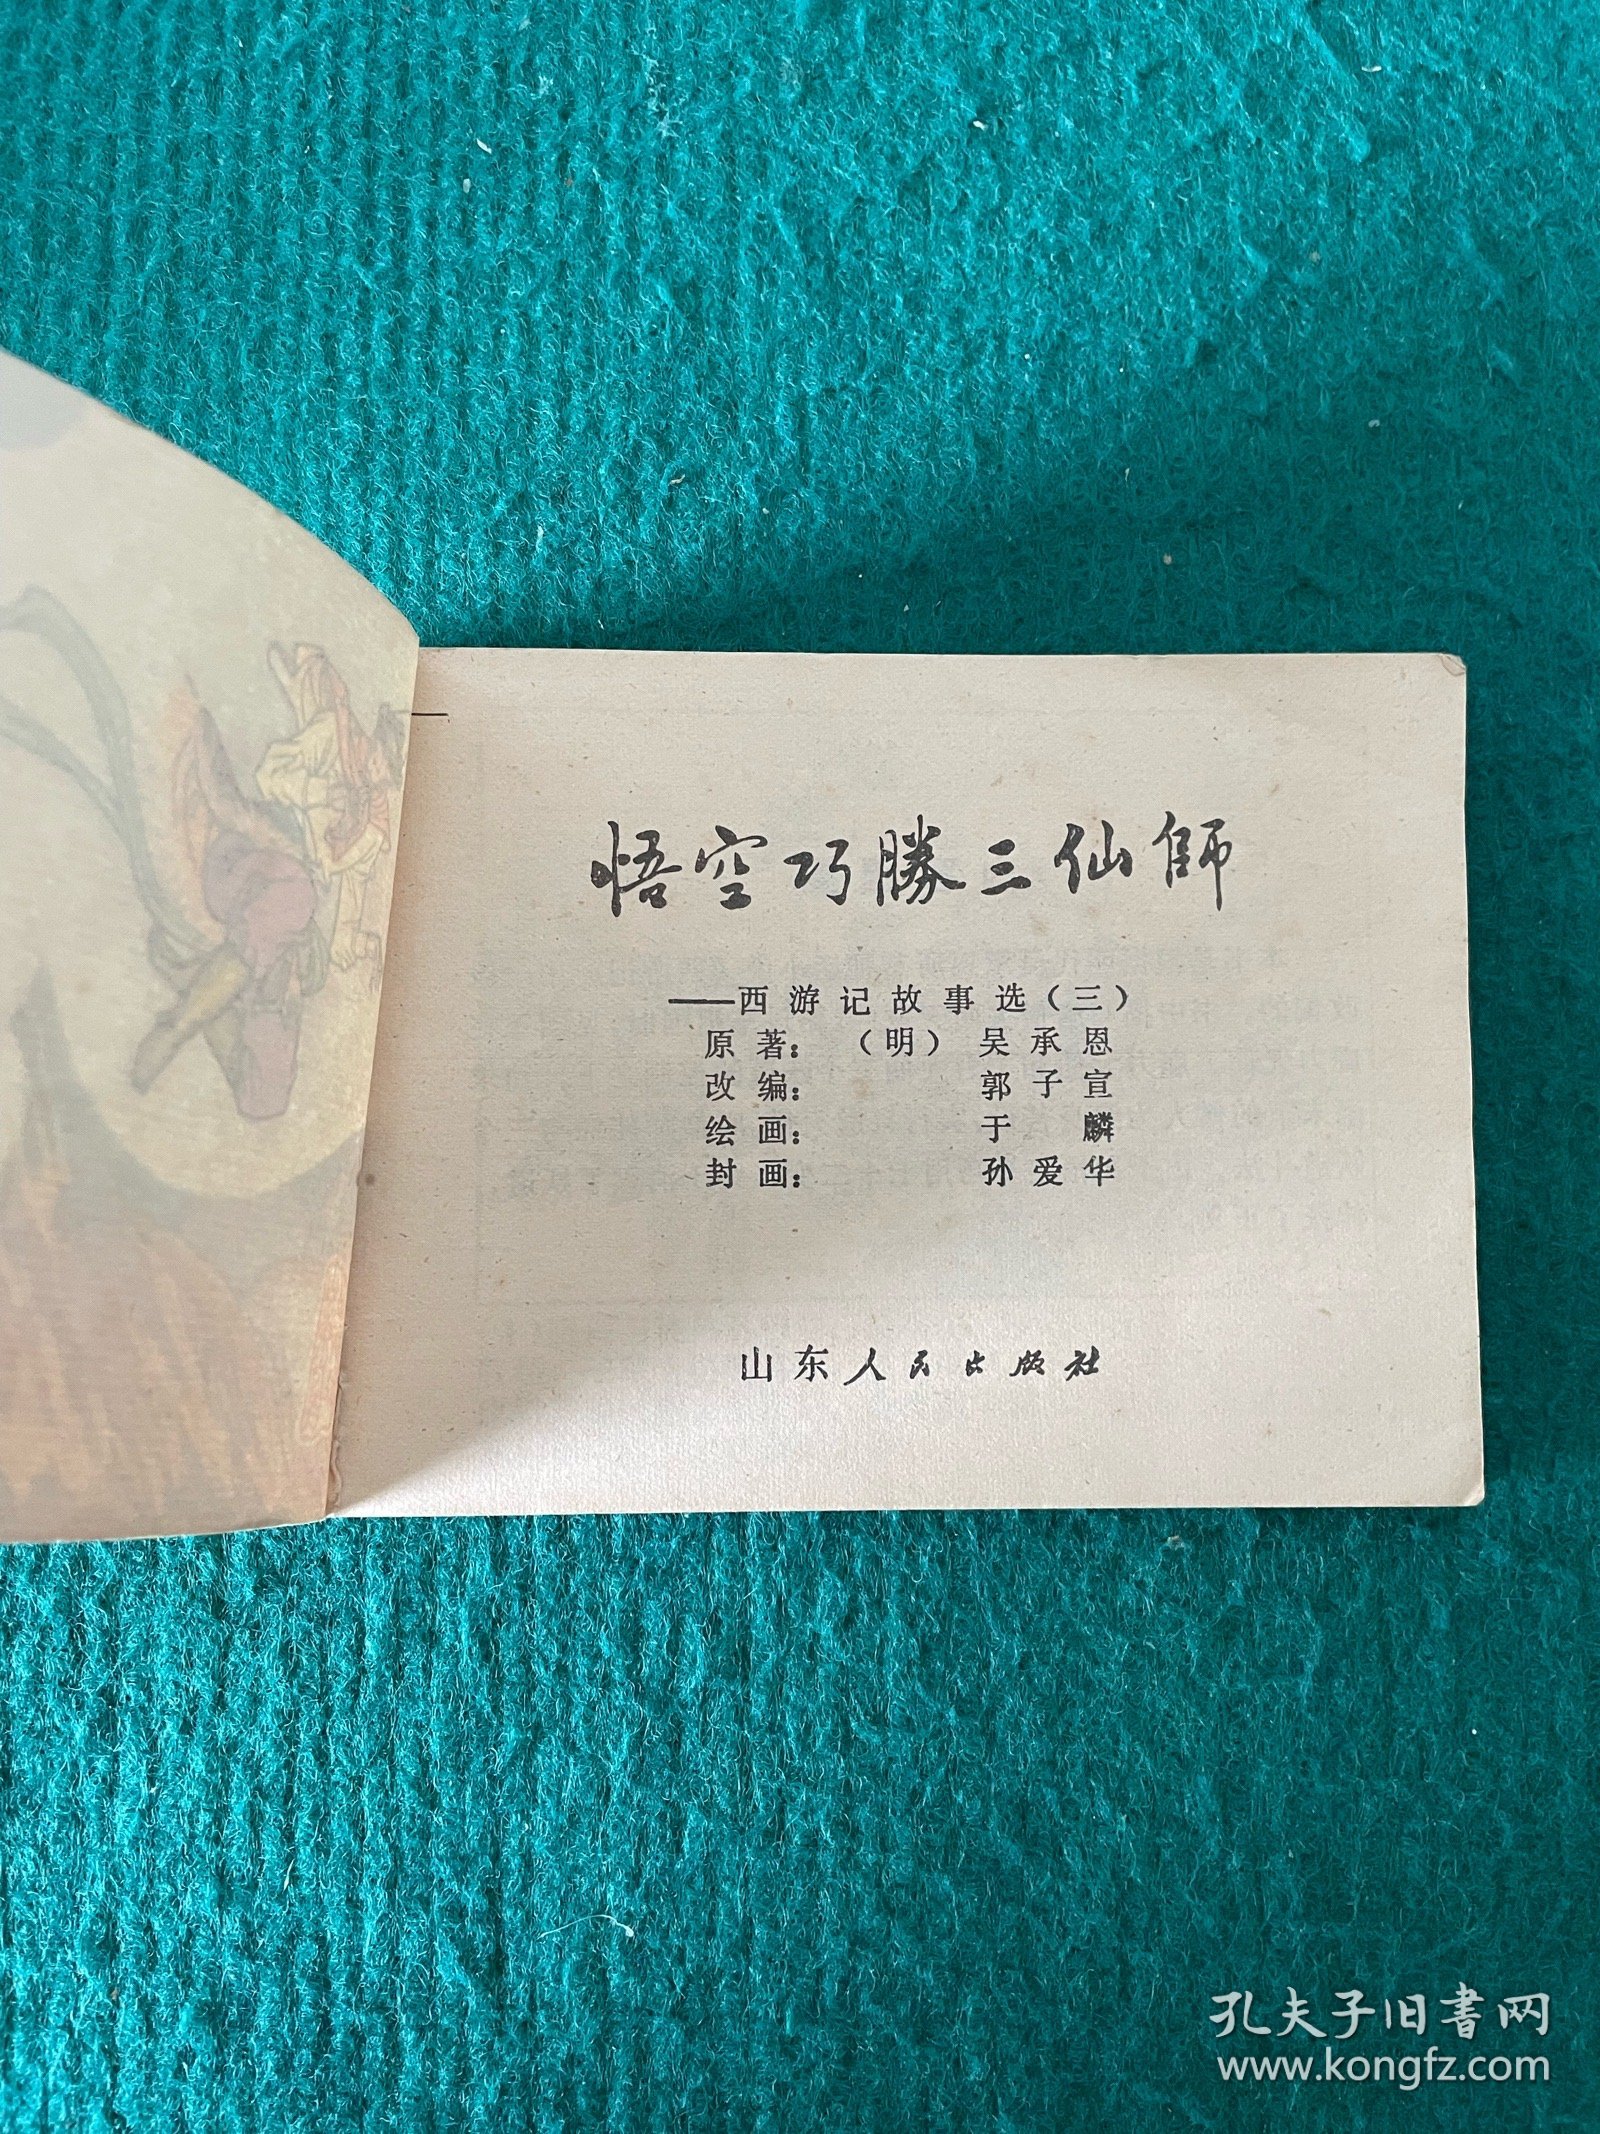 悟空巧勝三仙師
——西游记故事选（三）
原著：（明）吴承恩
改编：郭子宣
绘画：于麟
封画：孙爱华
山东人民出版社
孔夫子旧書网
www.kongfz.com